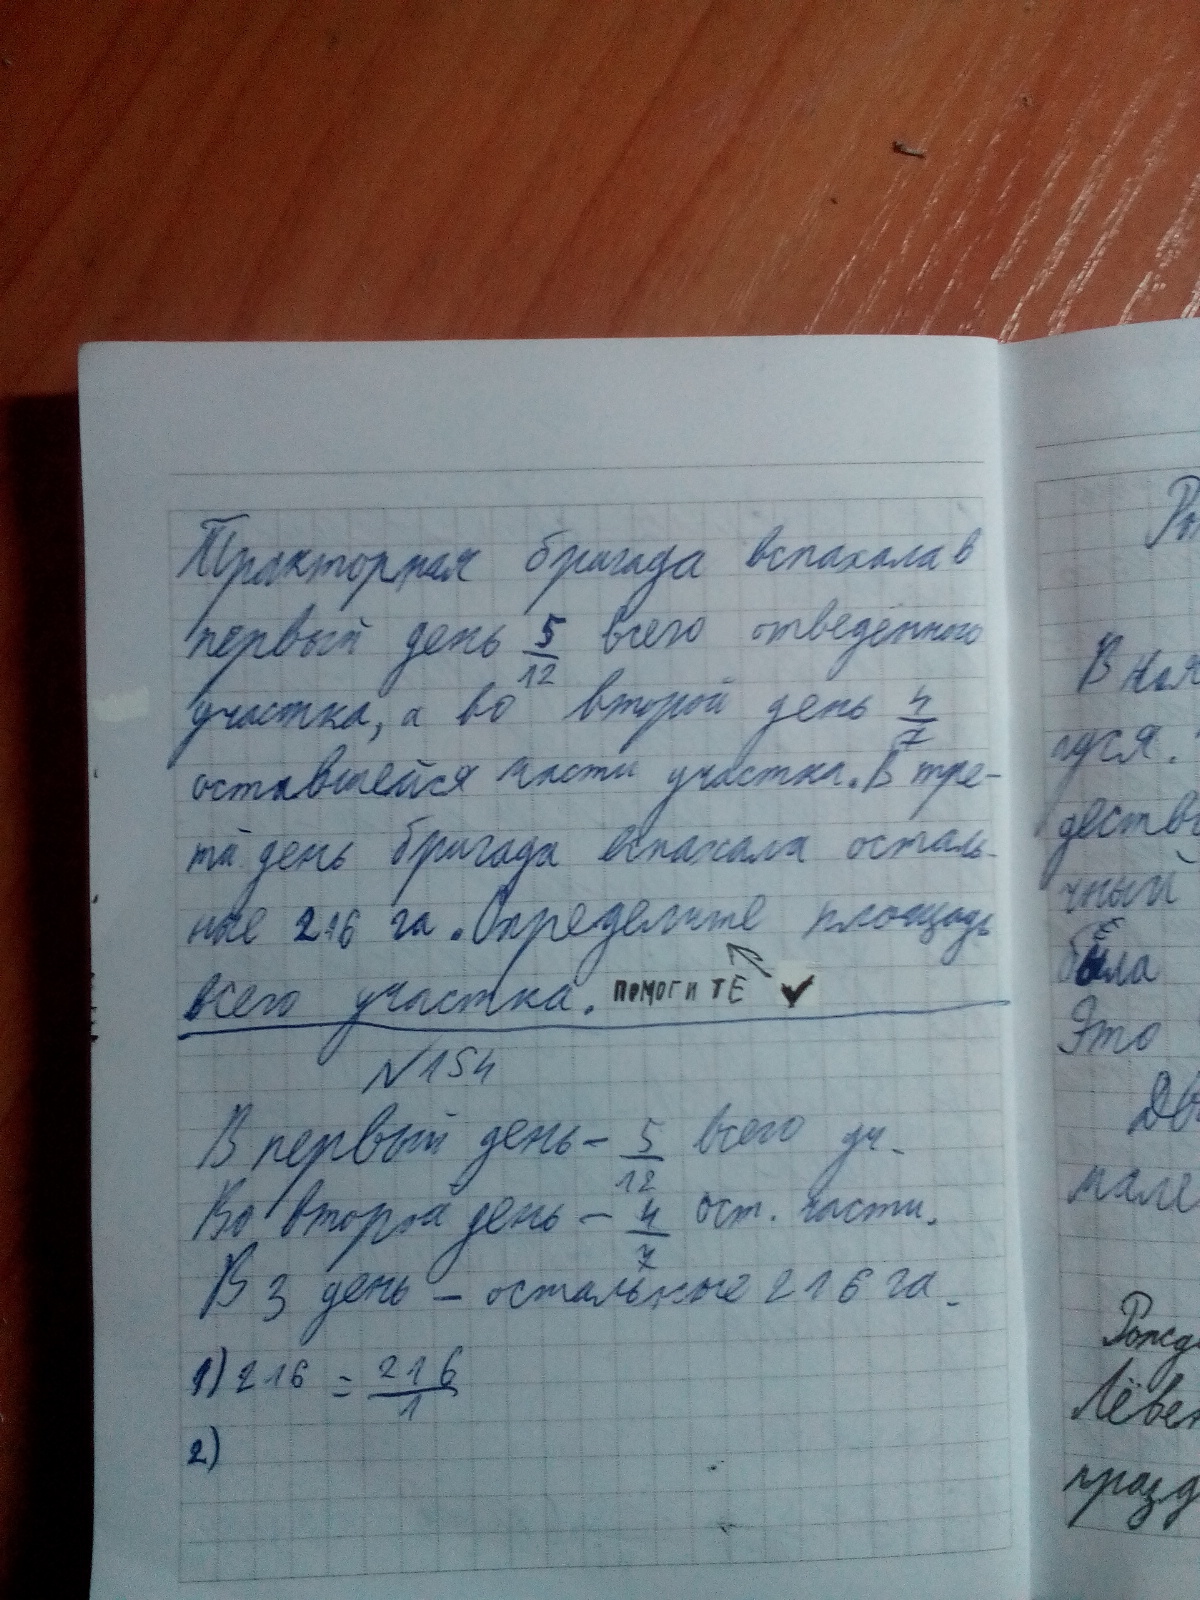 Тракторная бригада вспахала в
первый день 5/12 всего отведённого
участка, а во второй день 4/7
оставшейся части участка. В тре-
тй день бригада вспахала осталь-
ные 216 га. Определите площадь
всего участка. ПОМОГИТЕ
N154
В первый день - 5/12 всего уч.
Во второй день - 4/7 ост. части.
В 3 день - остальные 216 га.
1) 216 = 216/1
2)
была
Это